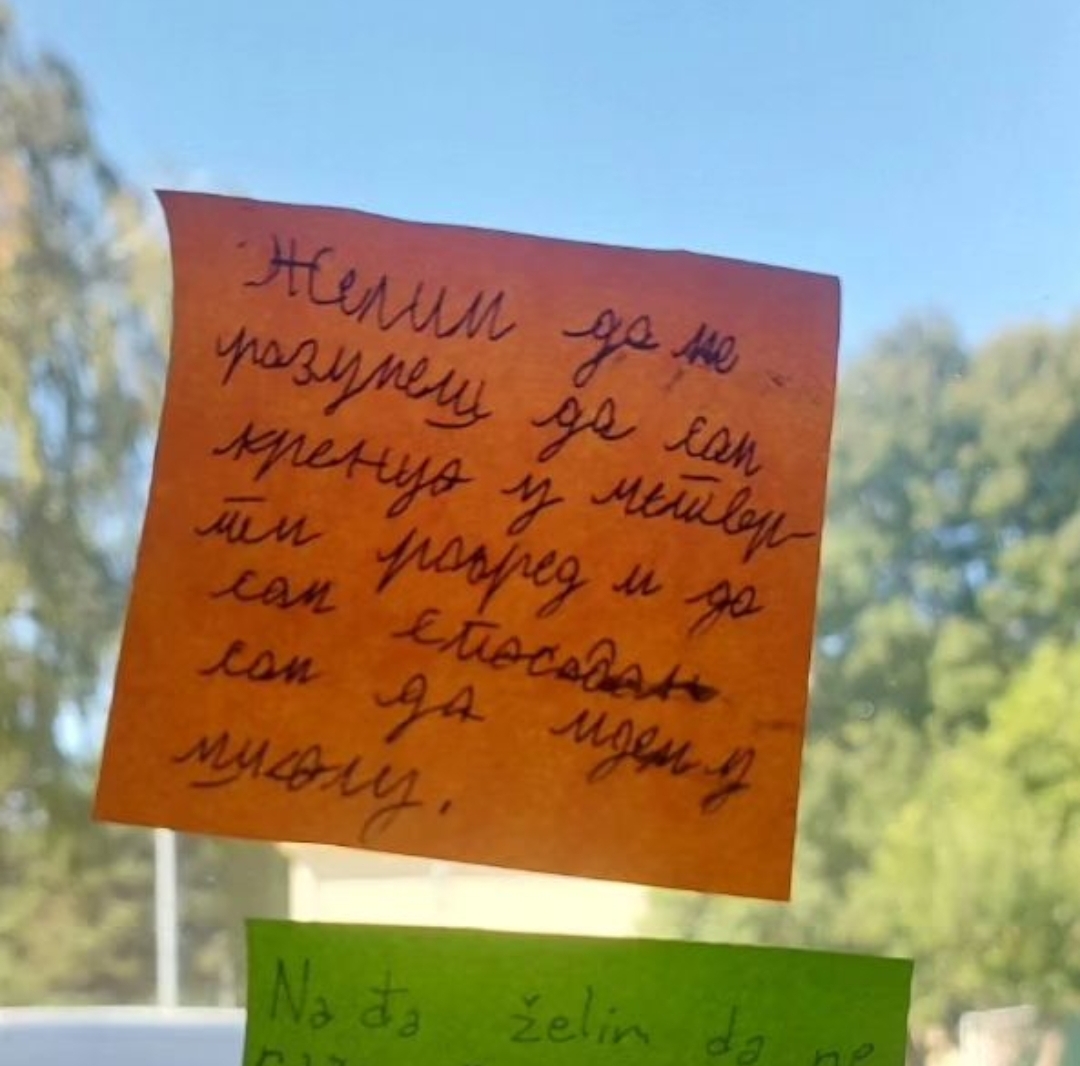 Желим да ме
разумеш да сам
кренуо у четвр-
ти разред и да
сам способан
сам да идем у
школу.
Nađa želim da me